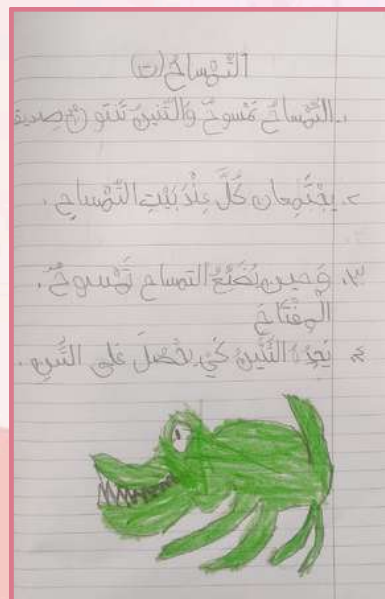 التِّمْساحُ (ت)
١. التِّمْساحُ تَمْسوحٌ وَالتِّنّينُ تَنتو
٢. يَجْتَمِعانِ كُلَّ عِنْدَ بَيْتِ التِّمْساحِ.
٣. وَحينَ يُضَيِّعُ التمساح تَمْسوحٌ.
الْمِفْتاحَ
٤. التِّنّينُ كَيْ يَحْصُلَ عَلى